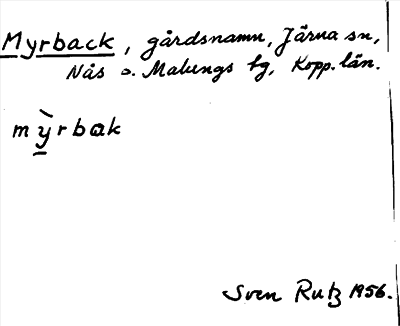 Myrback, gårdsnamn, Järna sn,
Nås o. Malungs tg, Kopp. län.
mỳrbak
Sven Rutz 1956.